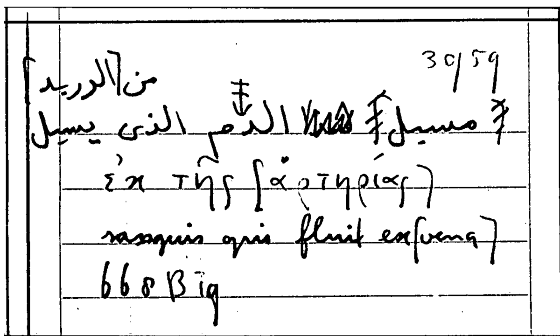 3059
من [الوريد]
‡ مسيل ‡ الدم الذى يسيل
ἐκ τῆς [ἀρτηρίας]
sanguis qui fluit ex [vena]
668 B 19